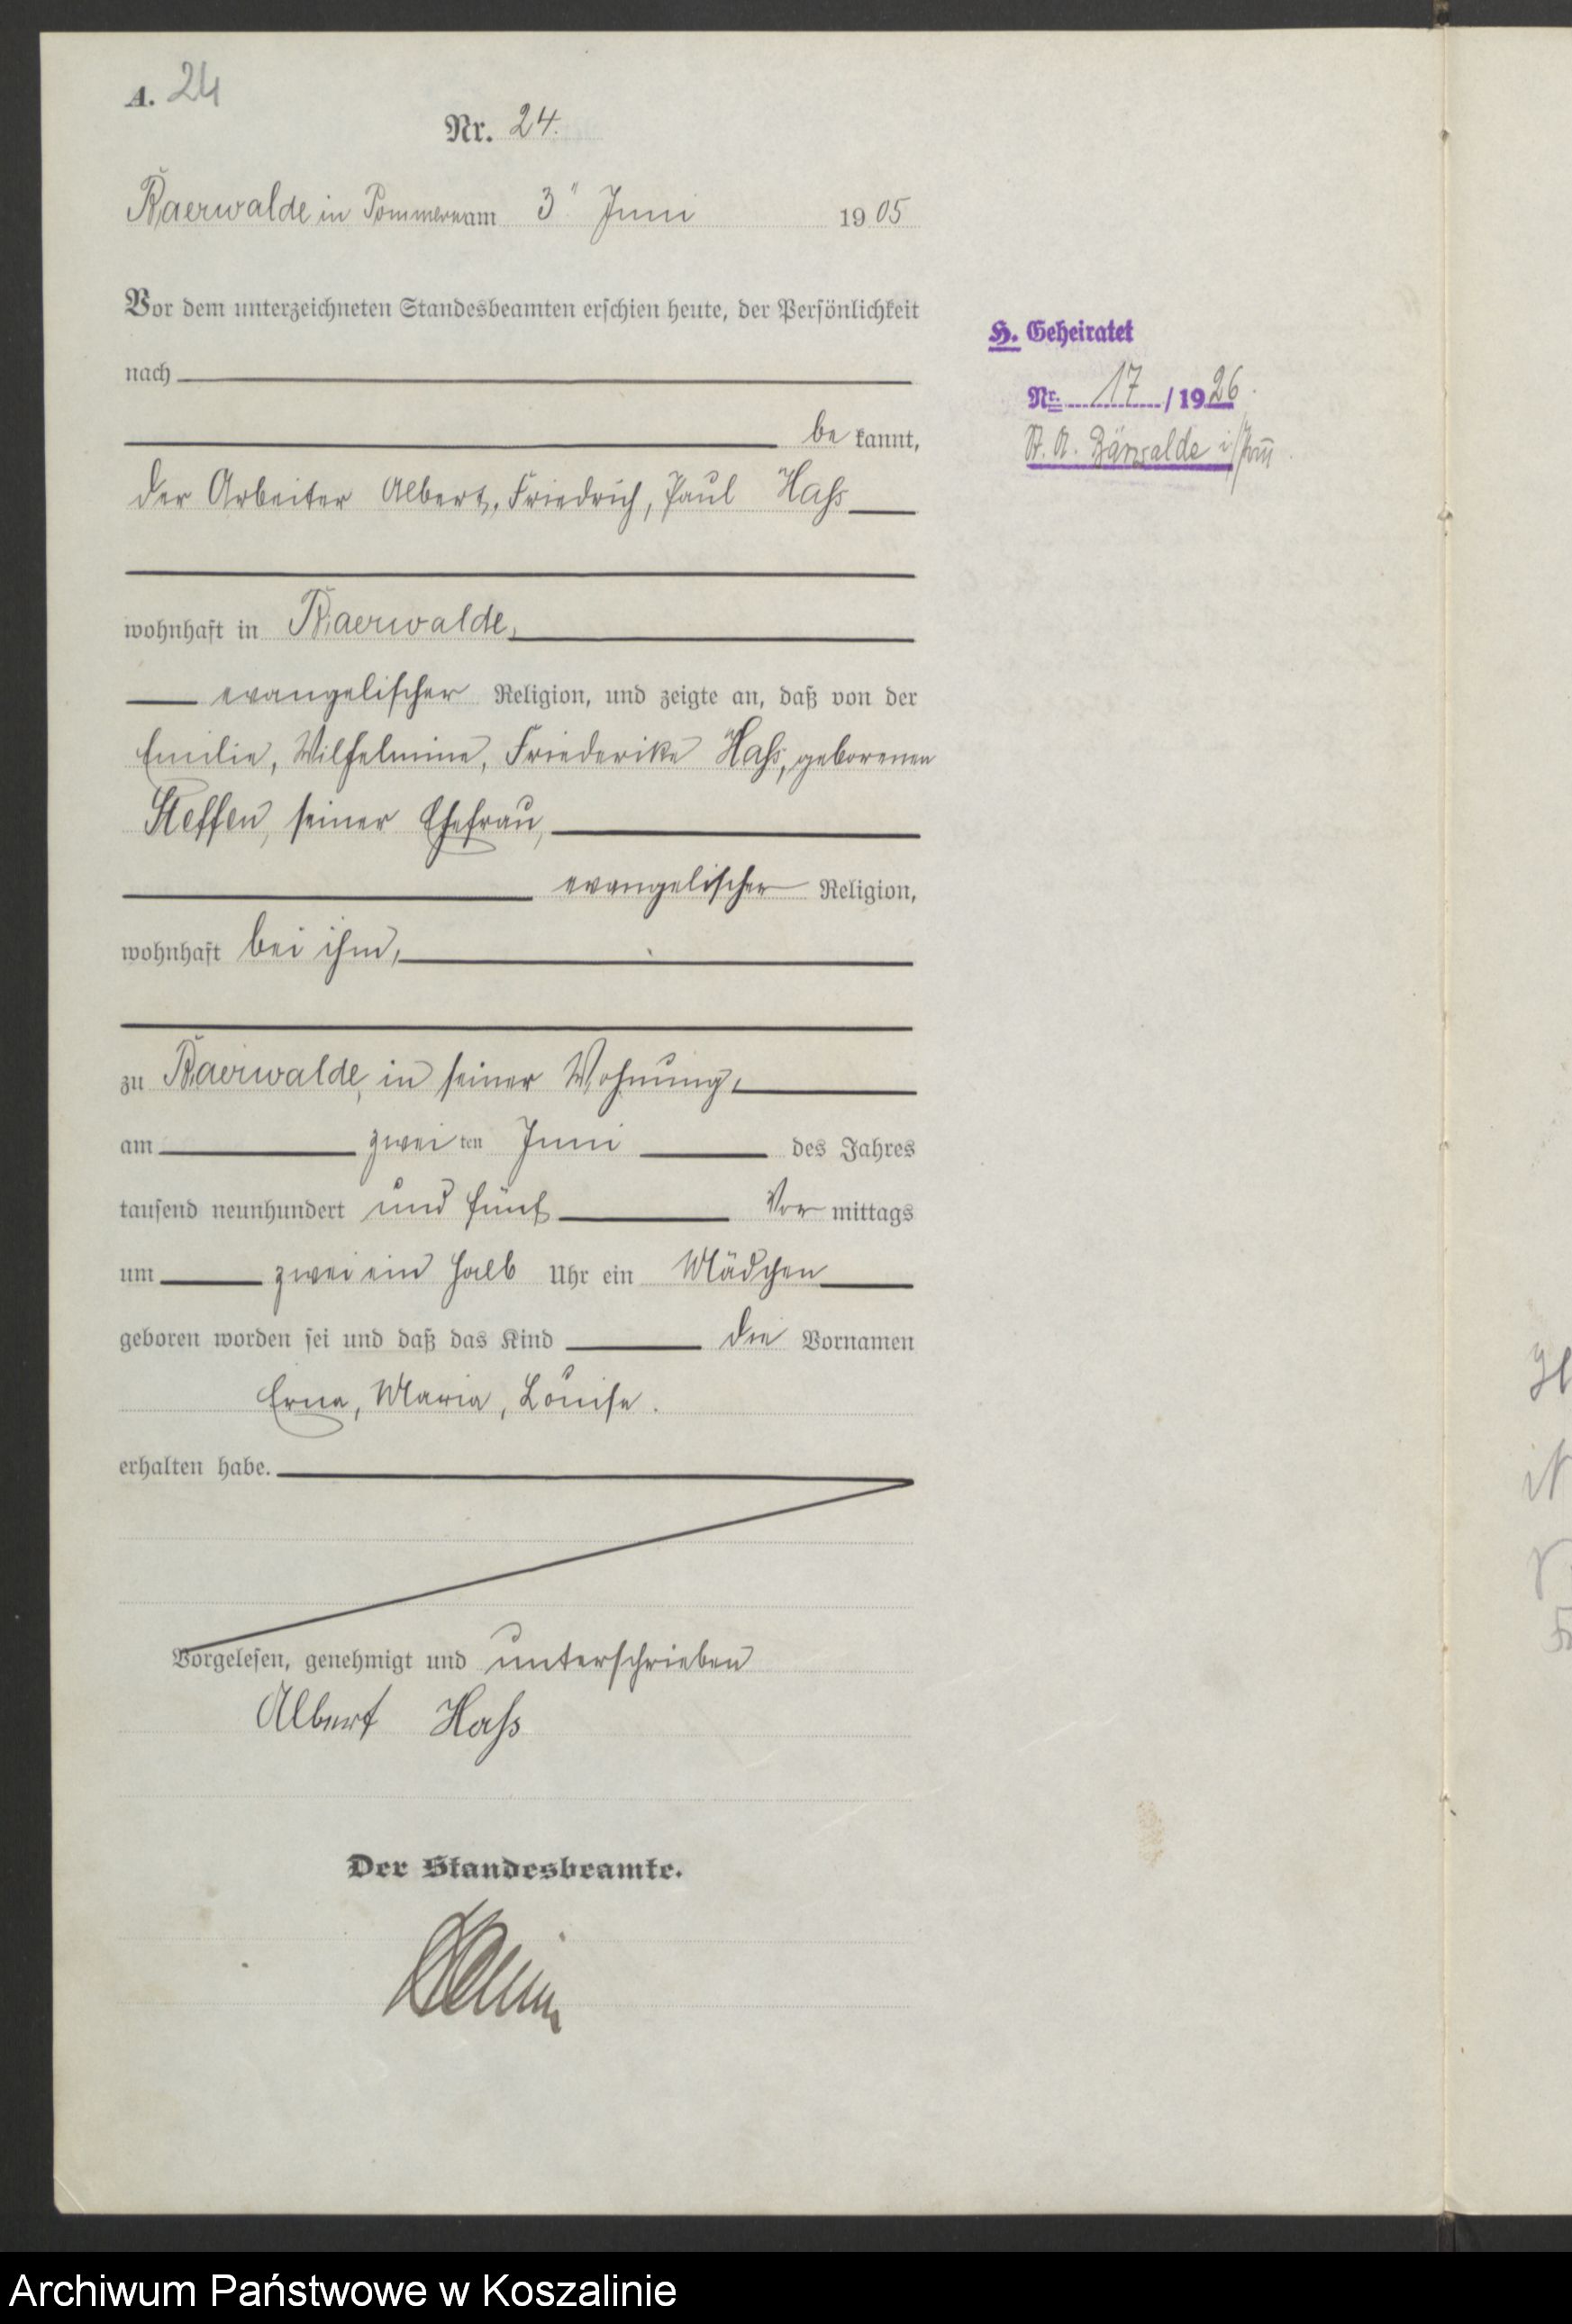 A. 24
Nr. 24.
Baerwalde in Pommern am 3" Juni 1905
Vor dem unterzeichneten Standesbeamten erschien heute, der Persönlichkeit
nach
be kannt,
der Arbeiter Albert, Friedrich, Paul Haß
wohnhaft in Baerwalde,
evangelischer Religion, und zeigte an, daß von der
Emilie, Wilhelmine, Friederike Haß, geborenen
Steffen, seiner Ehefrau,
evangelischer Religion,
wohnhaft bei ihm,
zu Baerwalde, in seiner Wohnung,
am zwei ten Juni des Jahres
tausend neunhundert und fünf Vor mittags
um zwei ein halb Uhr ein Mädchen
geboren worden sei und daß das Kind die Vornamen
Erna, Maria, Louise.
erhalten habe.
Vorgelesen, genehmigt und unterschrieben
Albert Haß
Der Standesbeamte.
H. Geheiratet
Nr. 17 / 1926.
St. A. Bärwalde i/Pom.
Archiwum Państwowe w Koszalinie